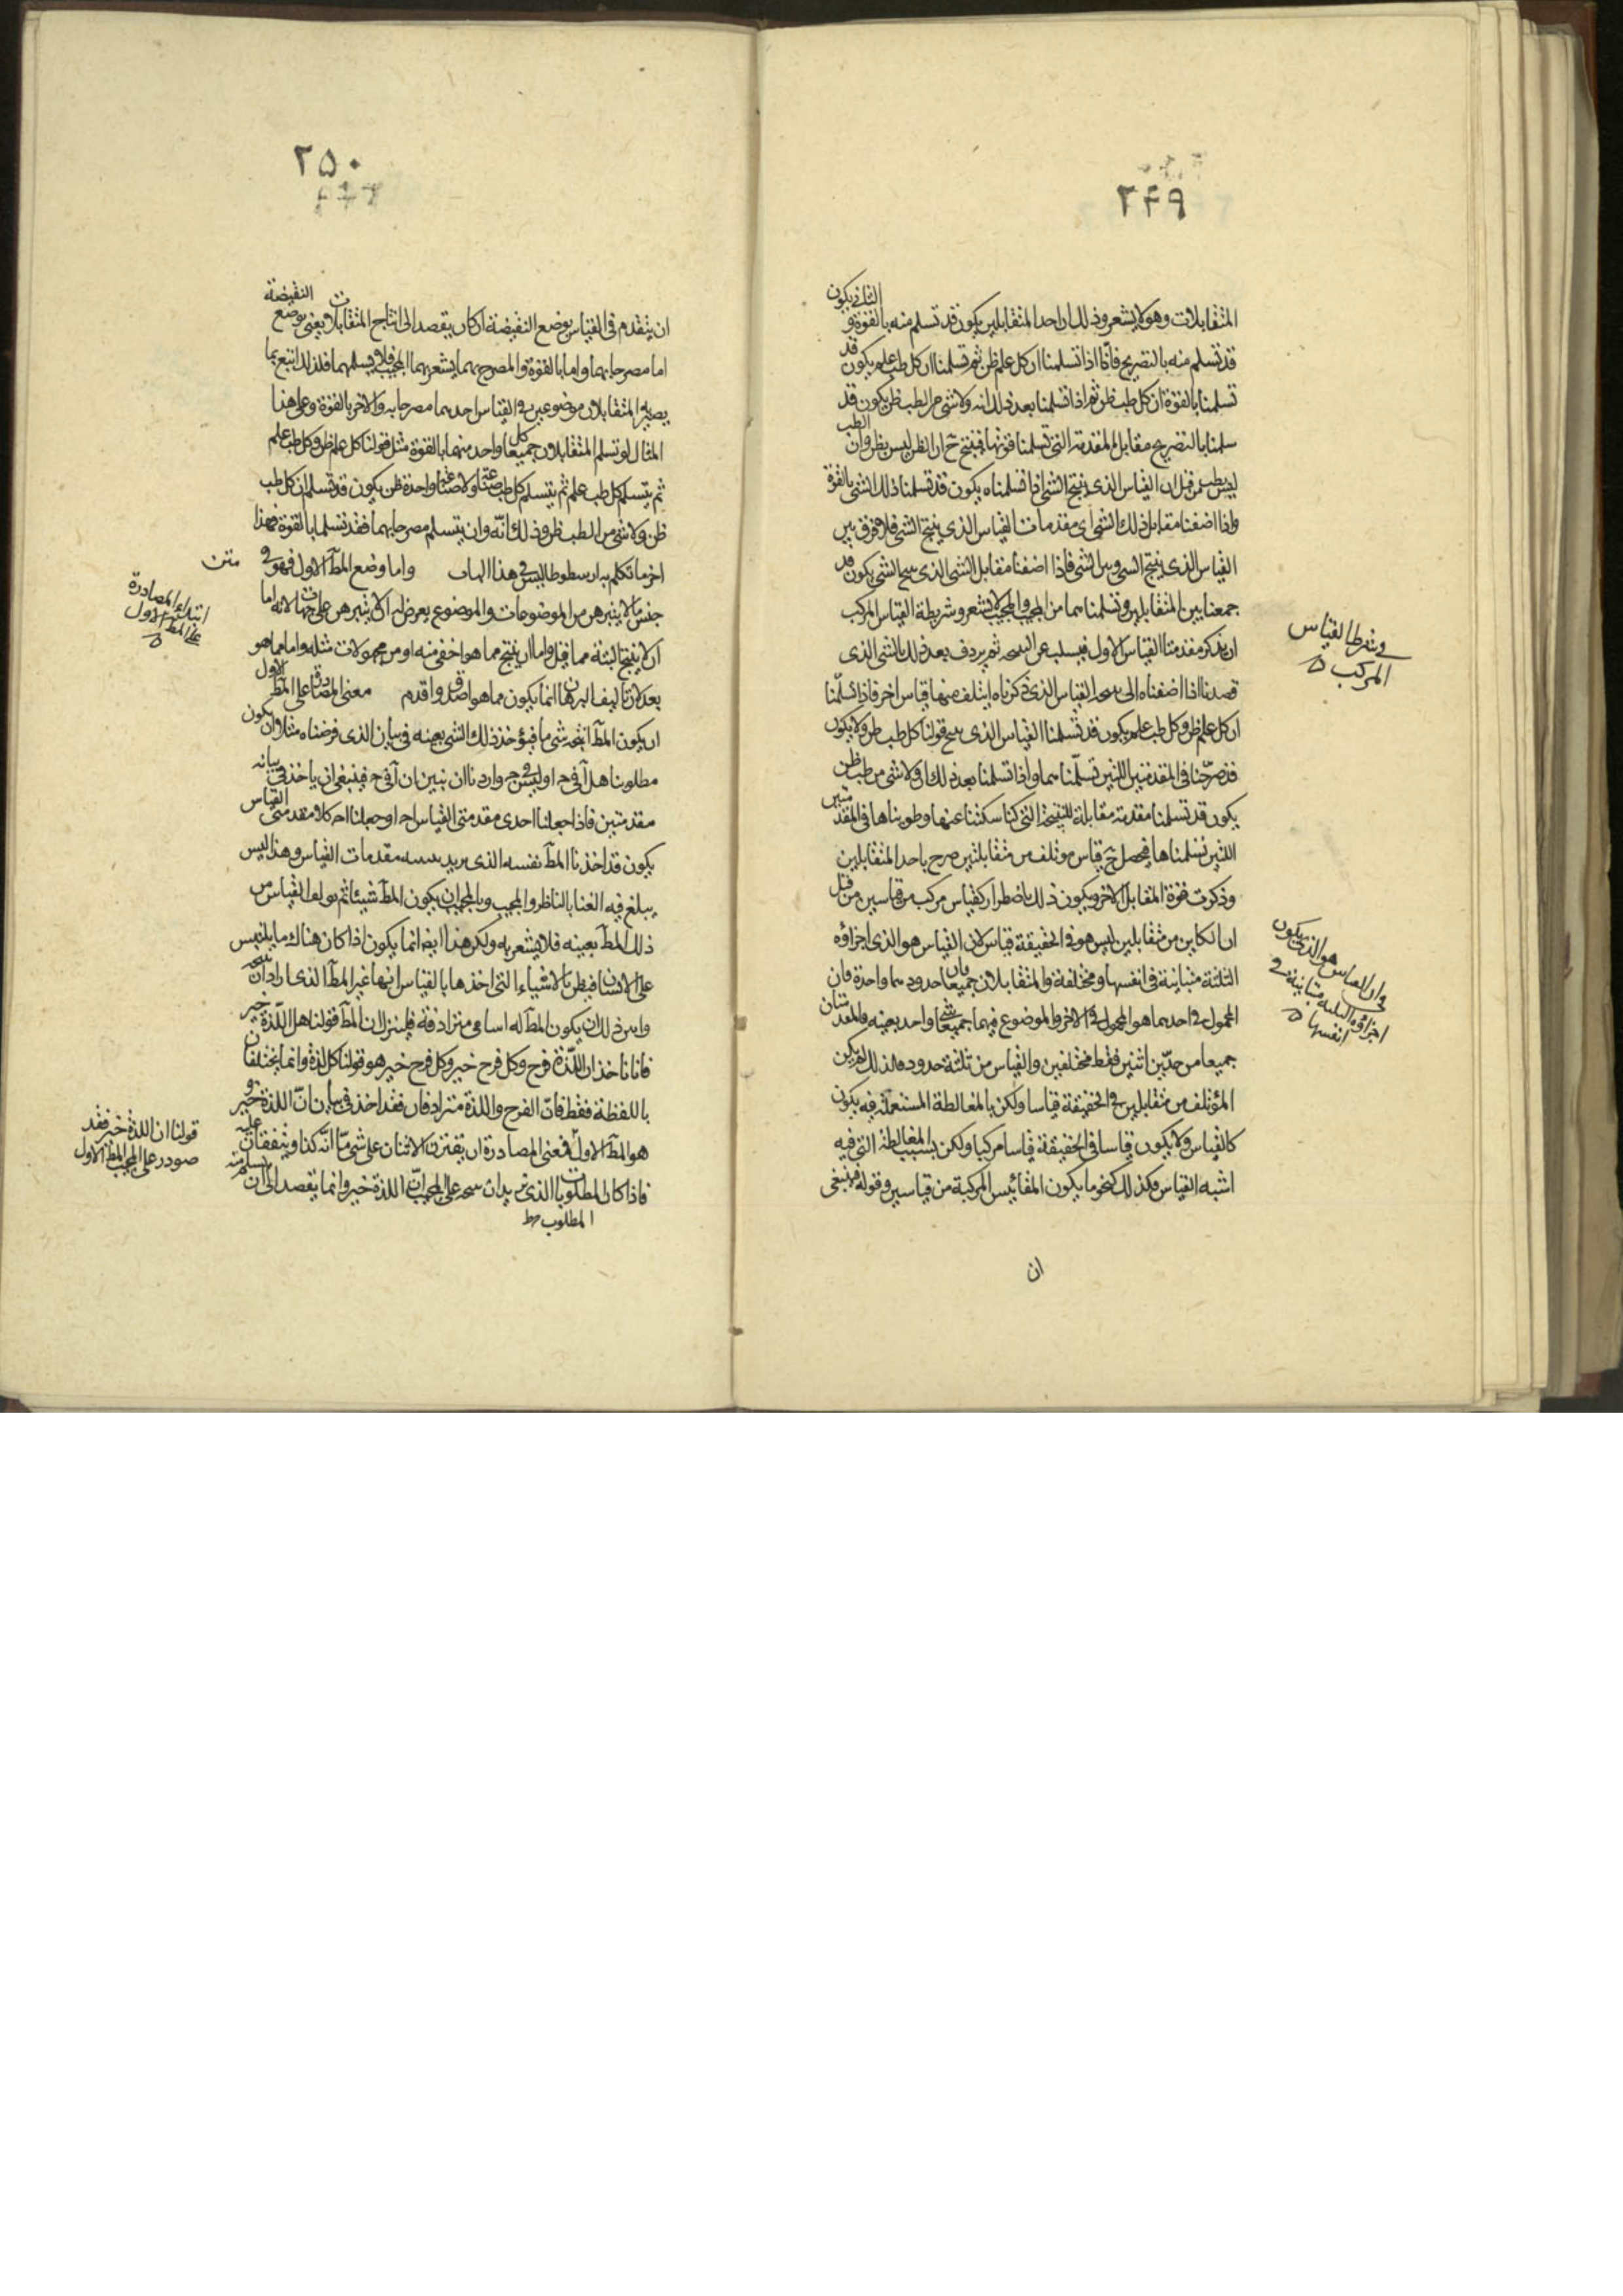 ٢۴٩
المتقابلات وهو لا يشعر وذلك ان احد المتقابلين يكون قد تسلم منه بالقوة والثانى يكون
قد تسلم منه بالتصريح فانا اذا تسلمنا ان كل علم ظن ثم تسلمنا ان كل طب علم يكون قد
تسلمنا بالقوة ان كل طب ظن ثم اذا تسلمنا بعد ذلك انه ولا شى من الطب ظن يكون قد
سلمنا بالتصريح مقابل المقدمة التى تسلمنا قوتها فينتج ح ان الظن ليس بظن وان الطب
ليس بطب من قبل ان القياس الذى ينتج الشى اذا تسلمناه يكون قد تسلمنا ذلك الشى بالقوة
واذا اضفنا مقابل ذلك الشى اى مقدمات القياس الذى ينتج الشى فلا فرق بين
القياس الذى ينتج الشى وبين الشى فاذا اضفنا مقابل الشى الذى ينتج الشى يكون قد
جمعنا بين المتقابلين وتسلمناهما من المجيب والمجيب لا يشعر وشريطة القياس المركب
ان يذكر مقدمتا القياس الاول فيسلب عن النتيجة ثم يردف بعد ذلك بالشى الذى
قصدنا اذا اضفناه الى نتيجة القياس الذى ذكرناه ايتلف منها قياس اخر فاذا تسلمنا
ان كل علم ظن وكل طب علم يكون قد تسلمنا القياس الذى ينتج قولنا كل طب ظن ولا يكون
قد صرحنا فى المقدمتين اللتين تسلمناهما واذا تسلمنا بعد ذلك ان ولا شى من طب ظن
يكون قد تسلمنا مقدمة مقابلة للنتيجة التى كنا سكتنا عنها وطويناها فى المقدمتين
اللتين تسلمناها فيحصل ح قياس مؤتلف من متقابلتين صرح باحد المتقابلين
وذكرت قوة المقابل الاخر ويكون ذلك باضطرار كقياس مركب من قياسين من قبل
ان الكاين من متقابلين ليس هو فى الحقيقة قياس لان القياس هو الذى اجزاؤه
الثلثة متباينة فى انفسها ومختلفة والمتقابلان جميعا حدودهما واحدة فان
المحمول فى احدهما هو المحمول فى الاخر والموضوع فيهما جميعا شى واحد بعينه والمقدمتان
جميعا من حدين اثنين فقط مختلفين والقياس من ثلثة حدود فلذلك لم يكن
المؤتلف من متقابلين فى الحقيقة قياسا ولكن بالمغالطة المستعملة فيه يكون
كالقياس ولا يكون قياسا فى الحقيقة قياسا مركبا ولكن بسبب المغالطة التى فيه
اشبه القياس فكذلك كنحو ما يكون المقائيس المركبة من قياسين وقوله فينبغى
ان
فى شرط القياس
المركب
فى ان القياس هو الذى يكون
اجزاؤه الثلثة متباينة فى
انفسها
٢۵٠
ان يتقدم فى القياس بوضع النقيضة ان كان يقصد الى انتاج المتقابلات يعنى بوضع النقيضة
اما مصرحا بهما واما بالقوة والمصرح بهما يشعر بهما المجيب فلا يسلمهما فلذلك اتبع بما
يصير المتقابلان موضوعين فى القياس احدهما مصرحا به والاخر بالقوة وعلى هذا
المثال لو تسلم المتقابلان جميعا كل واحد منهما بالقوة مثل قولنا كل علم ظن وكل طب علم
ثم يتسلم كل طب علم ثم يتسلم كل طب صناعة ولا صناعة واحدة ظن يكون قد تسلم ان كل طب
ظن ولا شى من الطب ظن وذلك انه وان يتسلم مصرحا بهما فقد تسلما بالقوة فهذا
اخر ما تكلم به ارسطوطاليس فى هذا الباب واما وضع المط الاول فهو فى
جنس ما لا يتبرهن من الموضوعات والموضوع يعرض له ان لا يتبرهن على جهات لانه اما
ان لا ينتج البتة مما قيل واما ان ينتج مما هو اخفى منه او من مجهولات مثله واما مما هو
بعد لان تاليف البرهان انما يكون مما هو اصدق واقدم معنى المصادرة على المط الاول
ان يكون المط انتجه شى ما فيؤخذ ذلك الشى بعينه فى بيان الذى فرضناه مثلا ان يكون
مطلوبنا هل آ فى ح او ليس فى ح واردنا ان نبين ان آ فى ح فينبغى ان ياخذ فى بيانه
مقدمتين فاذا جعلنا احدى مقدمتى القياس اح او جعلنا اح كلا مقدمتى القياس
يكون قد اخذنا المط نفسه الذى يريد مقدمات القياس وهذا ليس
يبلغ فيه الغنا بالناظر والمجيب ان يكون المط شيئا ثم يؤلف القياس من
ذلك المط بعينه فلا يشعر به ولكن هذا ايضا انما يكون اذا كان هناك ما يلتبس
على الانسان فيظن بالاشياء التى اخذها بالقياس انها غير المط الذى اراد ان
وليس ذلك ان يكون المط له اسامى مترادفة فلينزل ان المط قولنا هل اللذة خير
فانا ناخذ ان اللذة فرح وكل فرح خير وكل فرح خير هو قولنا كل لذة وانما يختلفان
باللفظة فقط فان الفرح واللذة مترادفان فقد اخذ فى بيان ان اللذة خير
هو المط الاول فمعنى المصادرة ان يقترن الاثنان على شى ما انه كذا ويتفقان عليه
فاذا كان المطلوب الذى نريد ان على المجيب ان اللذة خير وانما يقصد الى ان
المطلوب
متن
ابتداء المصادرة
على المط الاول
قولنا ان اللذة خير فقد
صودر على المجيب المط الاول